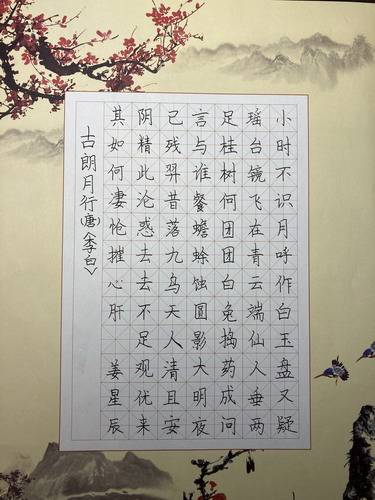 小时不识月呼作白玉盘又疑
瑶台镜飞在青云端仙人垂两
足桂树何团团白兔捣药成问
言与谁餐蟾蜍蚀圆影大明夜
已残羿昔落九乌天人清且安
阴精此沦惑去去不足观忧来
其如何凄怆摧心肝 姜星辰
古朗月行(唐)〈李白〉